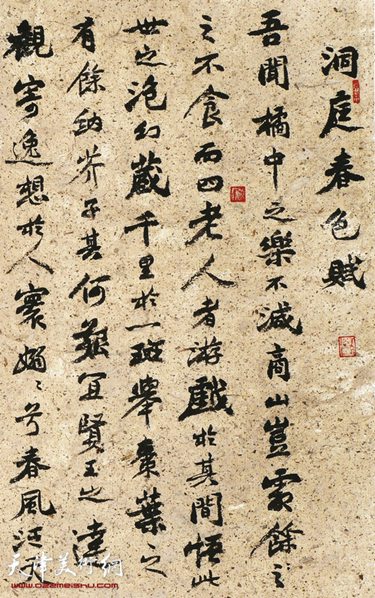 洞庭春色賦
吾聞橘中之樂不減商山豈霜餘之
之不食而四老人者游戲於其間悟此
世之泡幻藏千里於一斑舉棗葉之
有餘納芥子其何艱宜賢王之達
觀寄逸想於人寰嫋〻兮春風泛天
天津美术网
www.022meishu.com